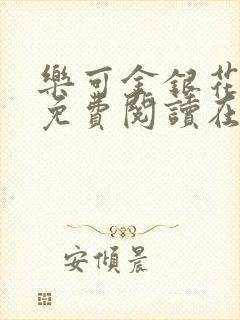 樂可金銀花
免費閱讀在
安傾晨